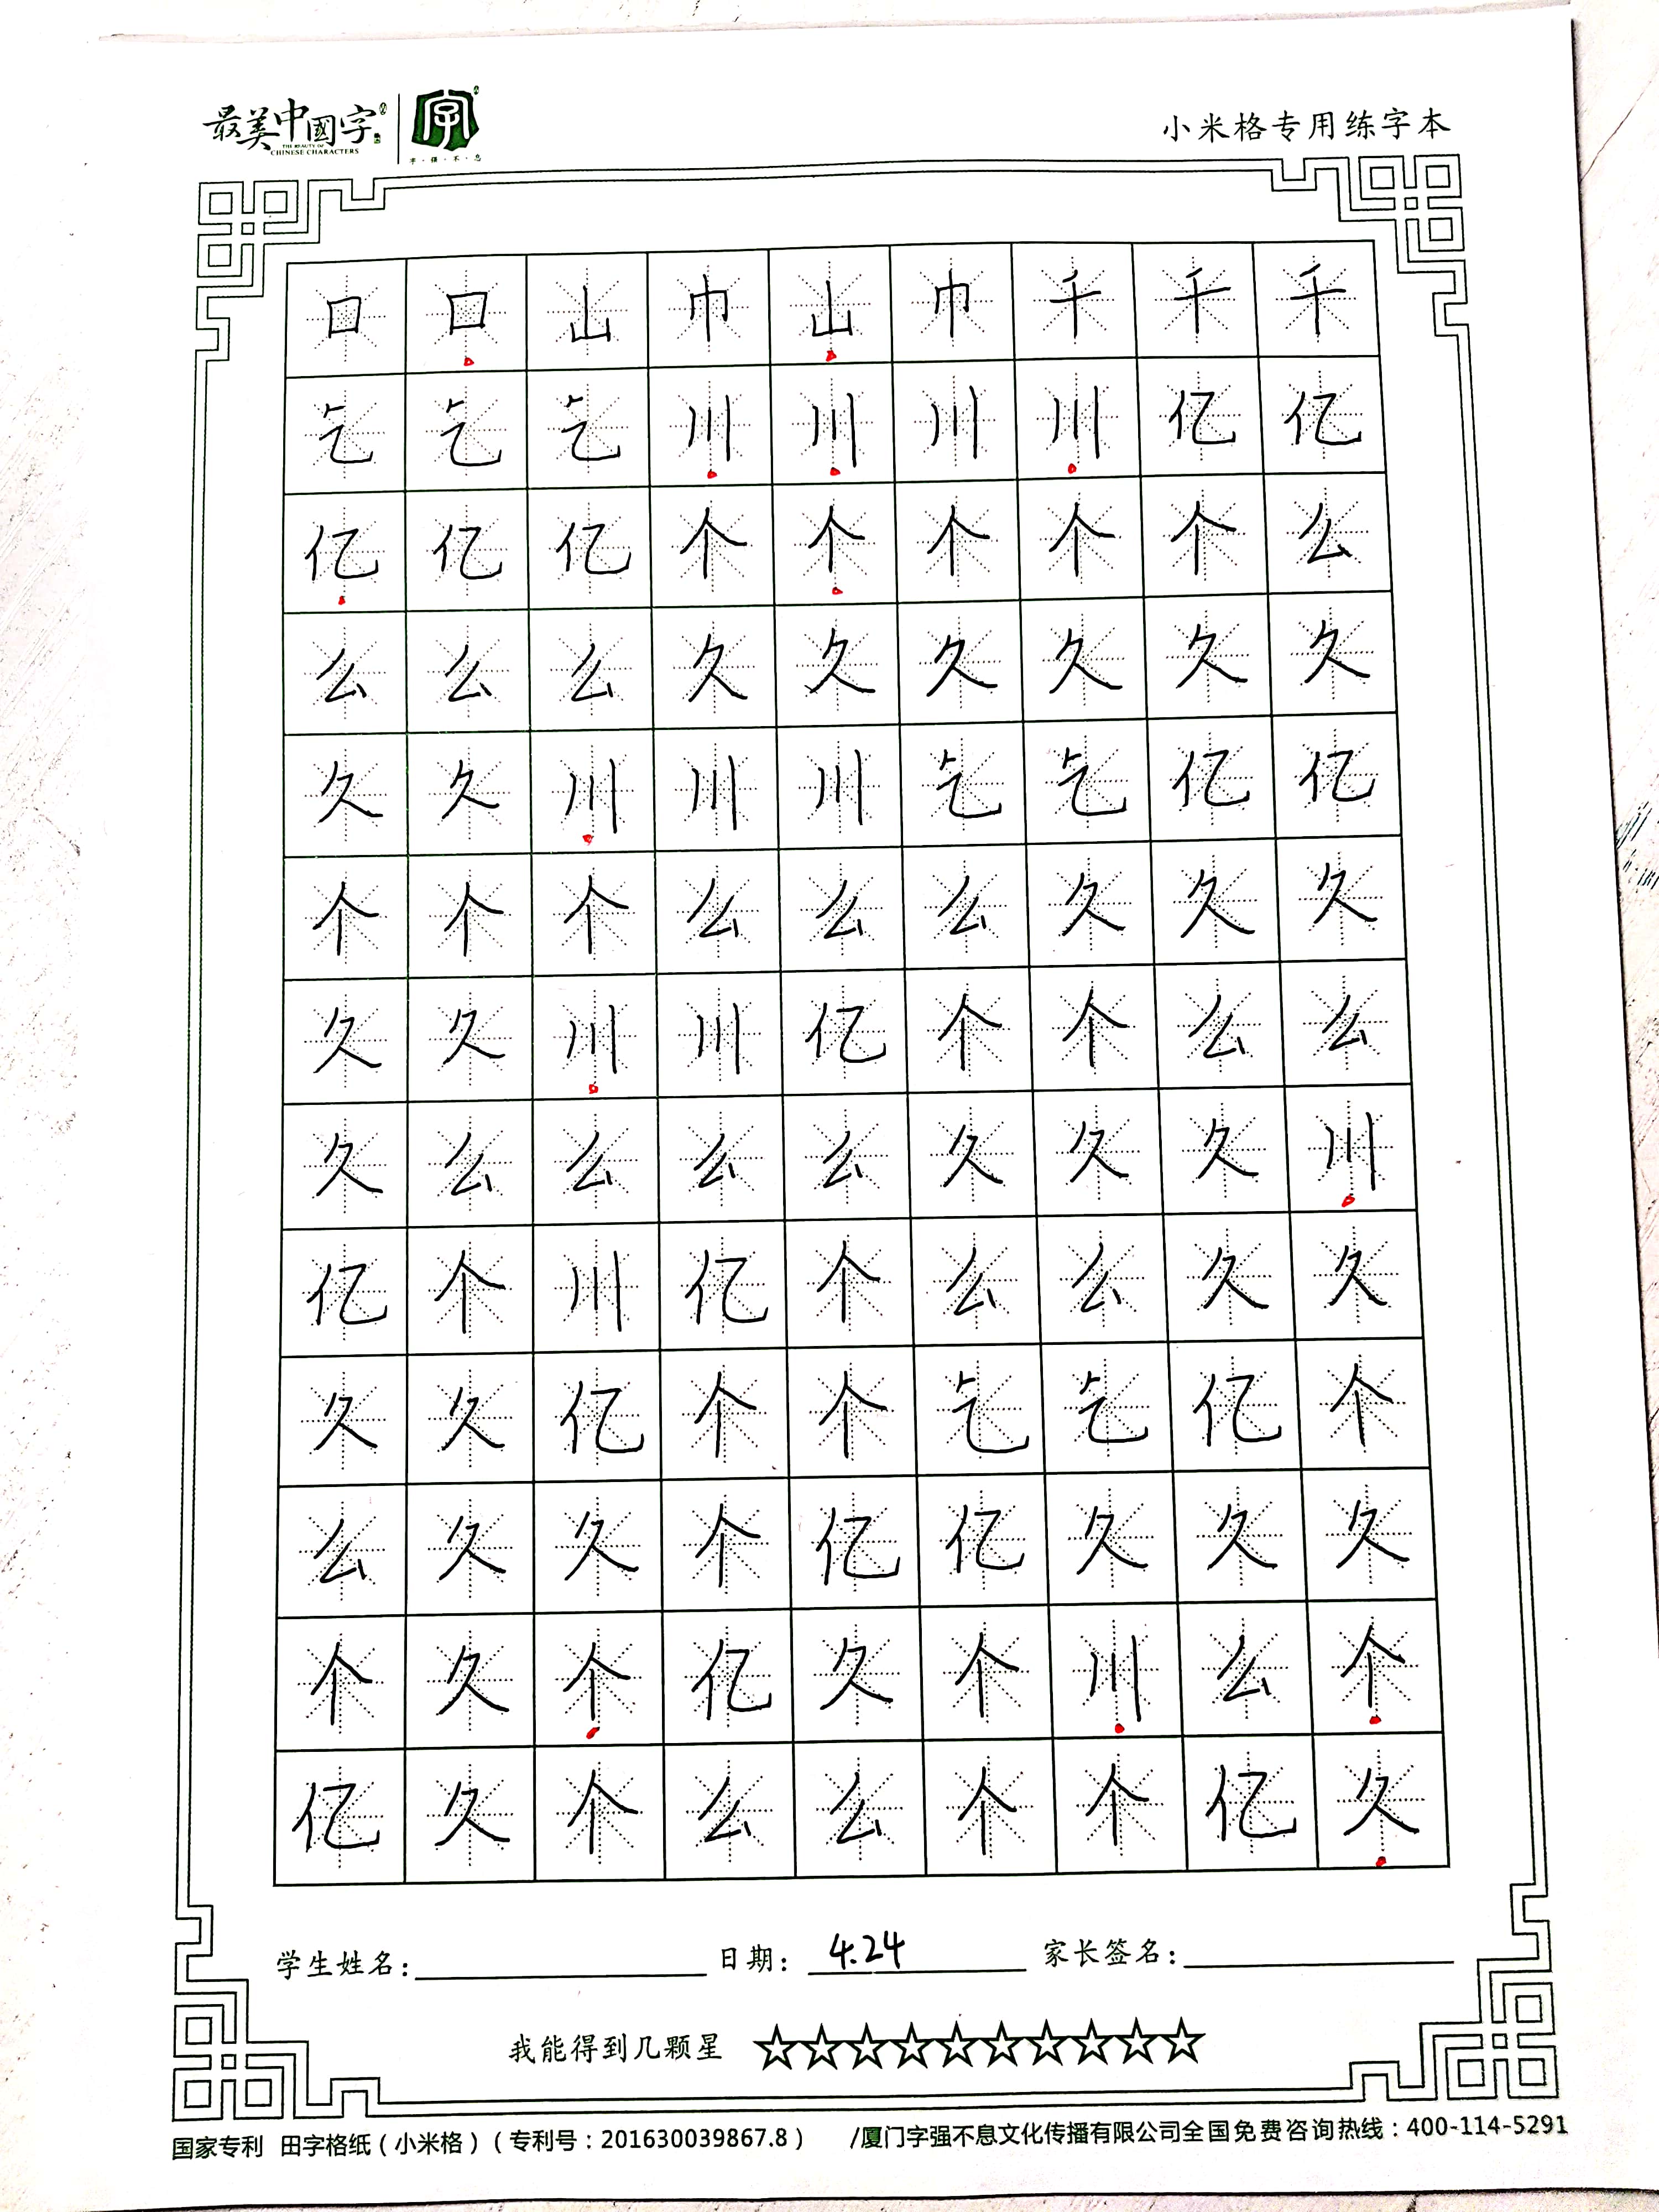 最美中國字
THE BEAUTY OF
CHINESE CHARACTERS
字
字·强·不·息
小米格专用练字本
口口山巾山巾千千千
乞乞乞川川川川亿亿
亿亿亿个个个个个么
么么么久久久久久久
久久川川川乞乞亿亿
个个个么么么久久久
久久川川亿个个么么
久么么么么久久久川
亿个川亿个么么久久
久久亿个个乞乞亿个
么久久个亿亿久久久
个久个亿久个川么个
亿久个么么个个亿久
学生姓名: 日期: 4.24 家长签名:
我能得到几颗星 ☆☆☆☆☆☆☆☆☆☆
国家专利 田字格纸(小米格)(专利号:201630039867.8) /厦门字强不息文化传播有限公司全国免费咨询热线:400-114-5291